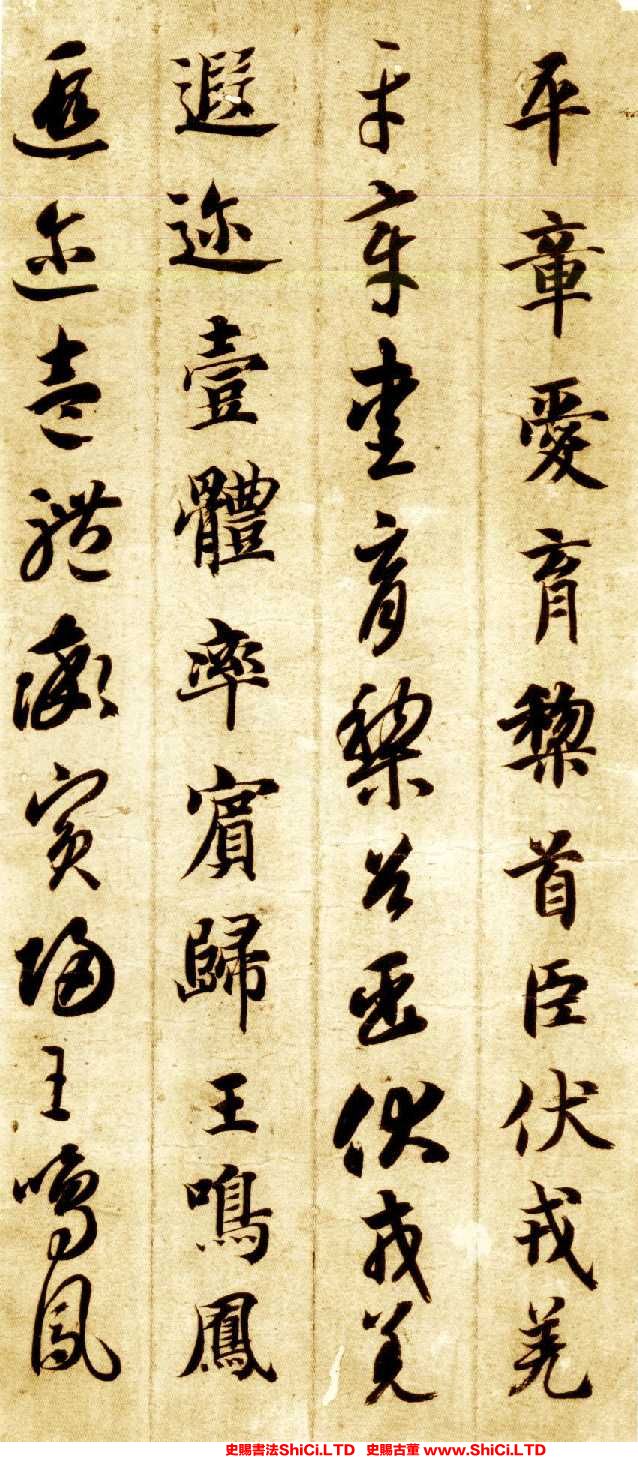 平章愛育黎首臣伏戎羌
平章愛育黎首臣伏戎羌
遐迩壹體率賓歸王鳴鳳
遐迩壹體率賓歸王鳴鳳
史賜書法ShiCi.LTD 史賜古董 www.ShiCi.LTD